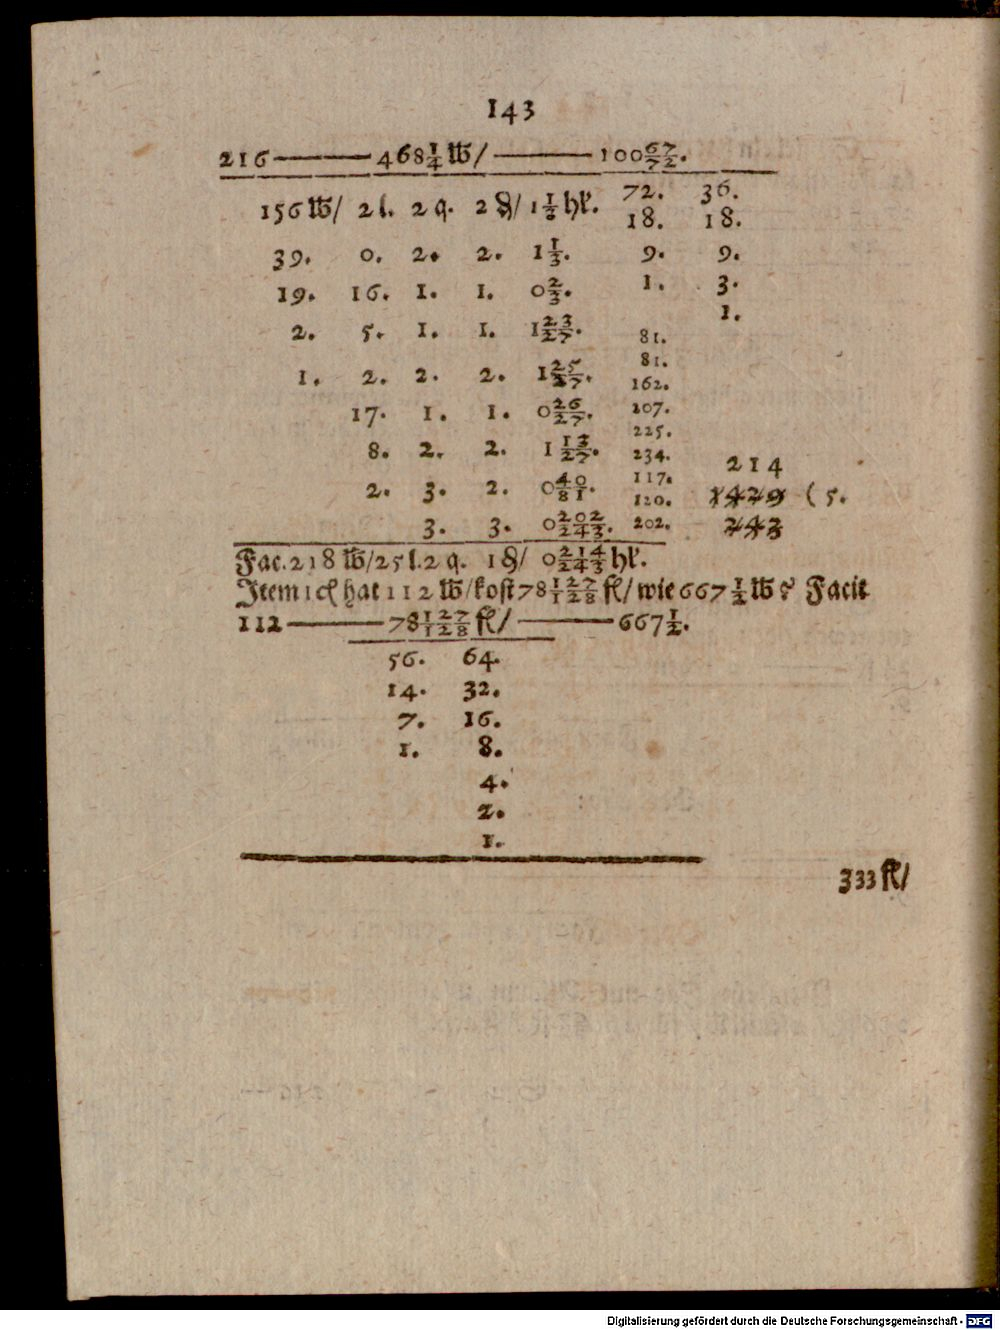 143
216 — 468 1/4 ℔/ — 100 67/72.
156 ℔/ 2 l. 2 q. 2 ₰/ 1 1/3 hl'. 72. 36.
18. 18.
39. 0. 2. 2. 1 1/3. 9. 9.
19. 16. 1. 1. 0 2/3. 1. 3.
1.
2. 5. 1. 1. 1 23/27. 81.
81.
1. 2. 2. 2. 1 25/27. 162.
17. 1. 1. 0 26/27. 207.
225.
8. 2. 2. 1 13/27. 234. 214
117.
2. 3. 2. 0 40/81. 120. 1429 ( 5.
3. 3. 0 202/243. 202. 243
Fac. 218 ℔/25 l. 2 q. 1 ₰/ 0 214/243 hl'.
Item 1 ck hat 112 ℔/kost 78 127/128 fl/ wie 667 1/2 ℔? Facit
112 — 78 127/128 fl/ — 667 1/2.
56. 64.
14. 32.
7. 16.
1. 8.
4.
2.
1.
333 fl/
Digitalisierung gefördert durch die Deutsche Forschungsgemeinschaft - DFG